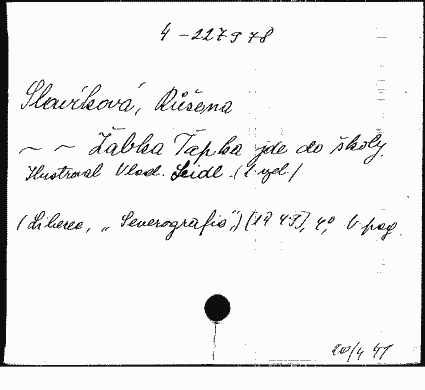 4-227978
Slavíková, Růžena
~ ~ Žabka Ťapka jde do školy.
Ilustroval Vlad. Seidl. (1. vyd.)
(Liberec, „Severografia",) [1947], 4°, pag.